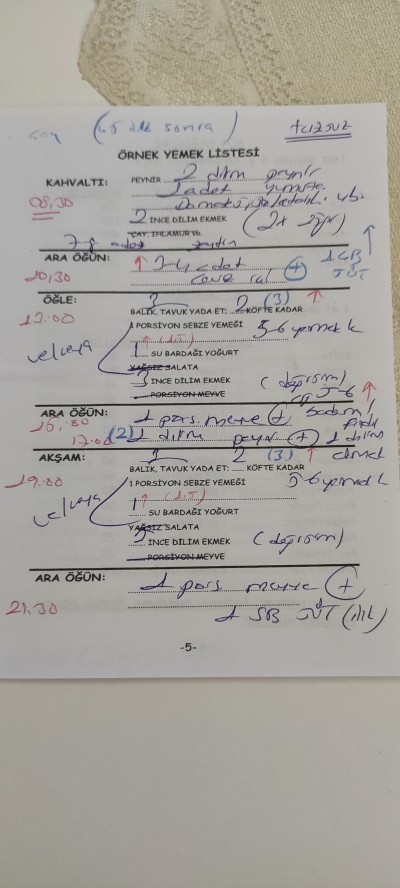 çay (45 dk sonra) tuzsuz
ÖRNEK YEMEK LİSTESİ
KAHVALTI: PEYNİR 2 dilim peynir
1 adet yumurta
Domates, vb.
2 İNCE DİLİM EKMEK
ÇAY, IHLAMUR vb.
7-8 adet zeytin
ARA ÖĞÜN: 3-4 adet 1 SB
10,30 ceviz + SÜT
08,30
ÖĞLE: 2 (3)
13.00 BALIK, TAVUK YADA ET: ... KÖFTE KADAR
1 PORSİYON SEBZE YEMEĞİ 5-6 yemek k
ve/veya 1 (1,5)
SU BARDAĞI YOĞURT
YAĞSIZ SALATA
3 İNCE DİLİM EKMEK (değişim)
PORSİYON MEYVE 5-6
ARA ÖĞÜN: 1 pors. meyve + badem/
17.00 (2) 1 dilim peynir + 1 dilim
ekmek
AKŞAM: 2 (3)
19.00 BALIK, TAVUK YADA ET: ... KÖFTE KADAR
1 PORSİYON SEBZE YEMEĞİ 5-6 yemek k
ve/veya 1 (1,5)
SU BARDAĞI YOĞURT
YAĞSIZ SALATA
3 İNCE DİLİM EKMEK (değişim)
PORSİYON MEYVE
ARA ÖĞÜN: 1 pors. meyve +
21.30 1 SB SÜT (ılık)
-5-